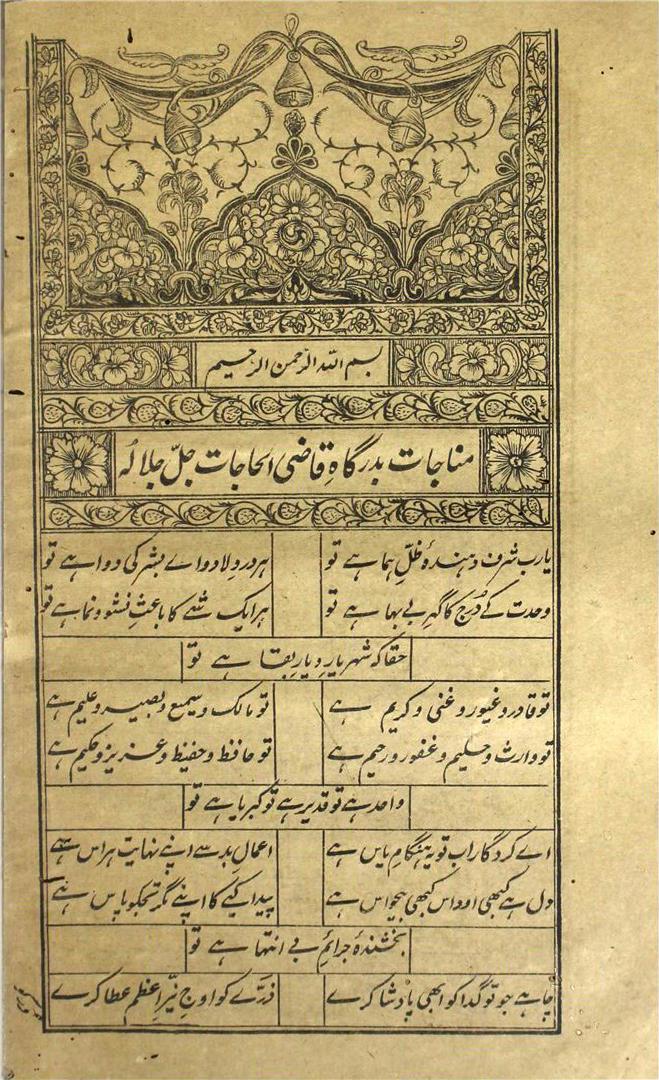 بسم اللہ الرحمن الرحیم
مناجات بدرگاہِ قاضی الحاجات جلّ جلالہٗ
یارب شرف دہندۂ ظلِّ ہما ہے تو ہر دردِ لادوائے بشر کی دوا ہے تو
وحدت کے دُرج کا گہرِ بے بہا ہے تو ہر ایک شے کا باعثِ نشو و نما ہے تو
حقا کہ شہریارِ دیارِ بقا ہے تو
تو قادر و غیور و غنی و کریم ہے تو مالک و سمیع و بصیر و علیم ہے
تو وارث و حلیم و غفور و رحیم ہے تو حافظ و حفیظ و عزیز و حکیم ہے
واحد ہے تو قدیر ہے تو کبریا ہے تو
اے کردگار اب تو یہ ہنگامِ یاس ہے اعمالِ بد سے اپنے نہایت ہراس ہے
دل ہے کبھی اوداس کبھی بیحواس ہے پیدا کیے کا اپنے مگر تجکو پاس ہے
بخشندۂ جرائمِ بے انتہا ہے تو
چاہے جو تو گدا کو ابھی پادشا کرے ذرّے کو اوجِ نیّرِ اعظم عطا کرے